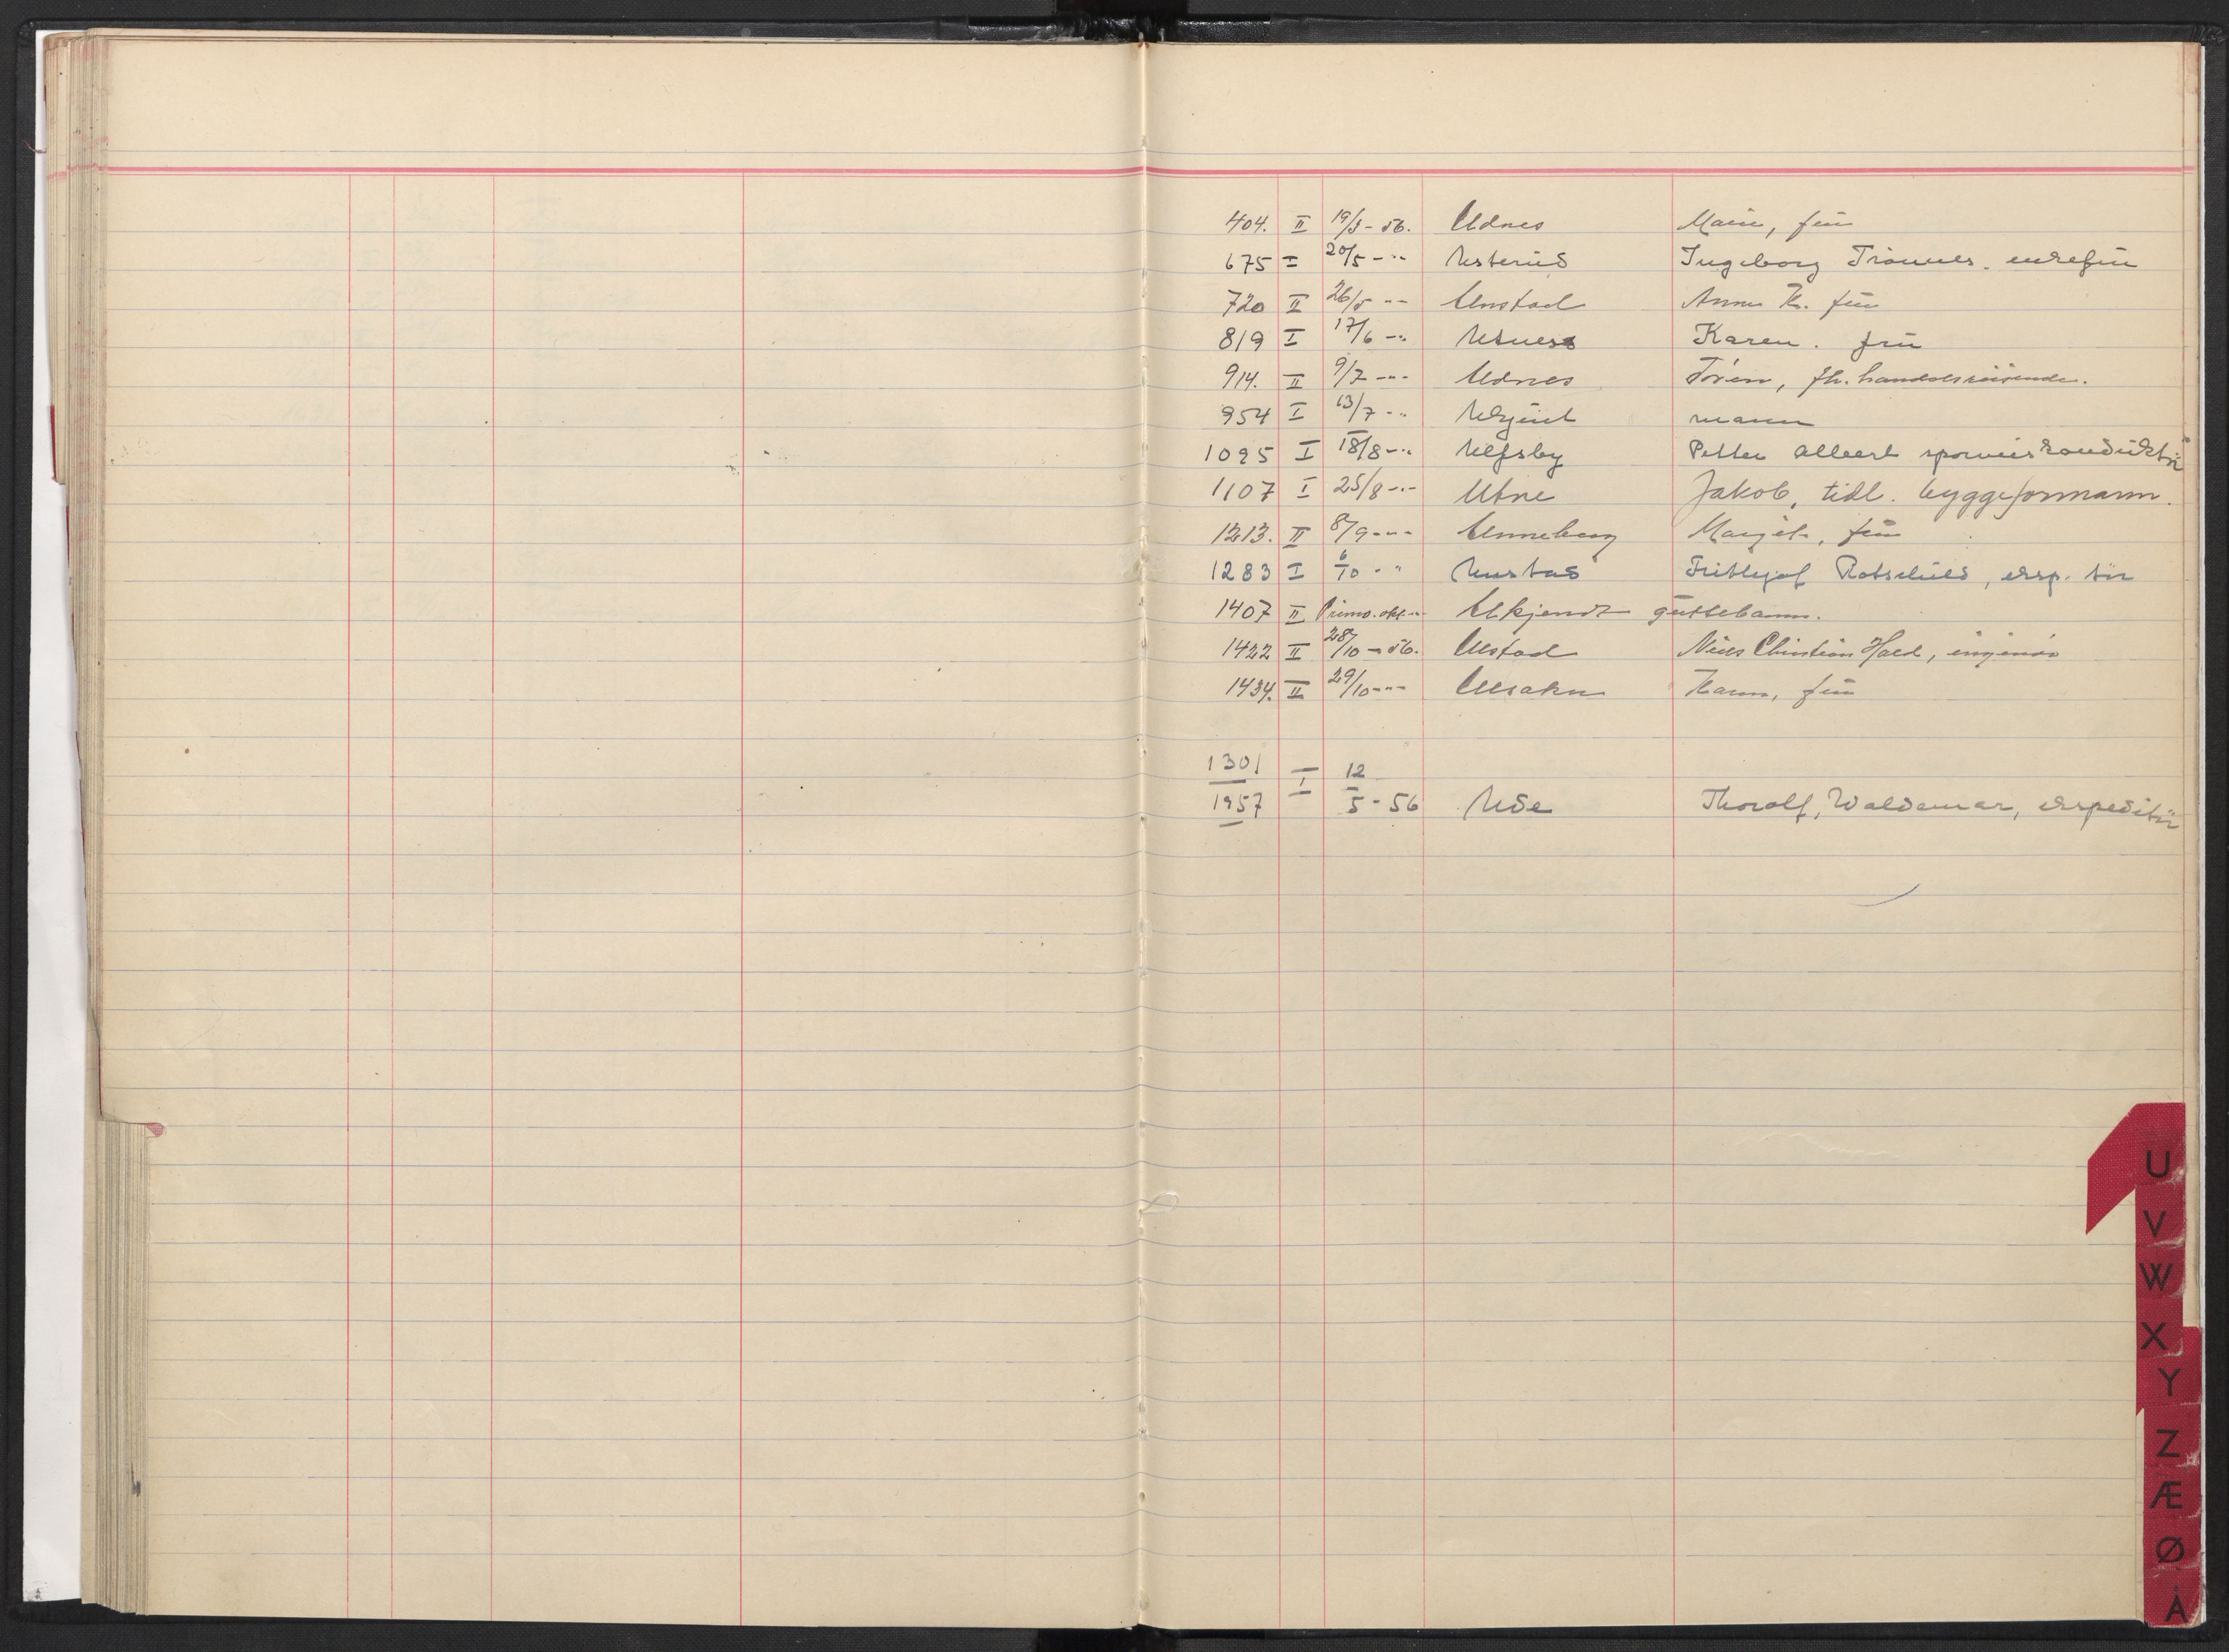 404. II 19/3 - 56. Udnes Marie, frú
675 I 20/5 - " Usterud Ingeborg enkefrú
720 II 26/5 " Unstad Anna K. frú
819 I 17/6 - " Utness Karen. frú
914. II 9/7 - " - Udnes fh. handelsreisende.
954 I 13/7 - " Ukjent mann
1095 I 18/8 - " Ulfsby Petter Albert sporveiskonduktør
1107 I 25/8 - " - Utne Jakob, tidl. byggeformann.
1213. II 8/9 - " - Unneberg Margit, frú
1283 I 6/10 - " Unstad Frithjof Rotschild, eksp. tør
1407 II Primo. okt - " - Ukjendt guttebarn.
1422 II 28/10 - 56. Ulstad Niels Christian Hald, ingeniør
1434. II 29/10 - " - Karen, frú
1301
1957 I 12/5 - 56 Ude Thorolf, Waldemar, ekspeditør
U
V
W
X
Y
Z
Æ
Ø
Å